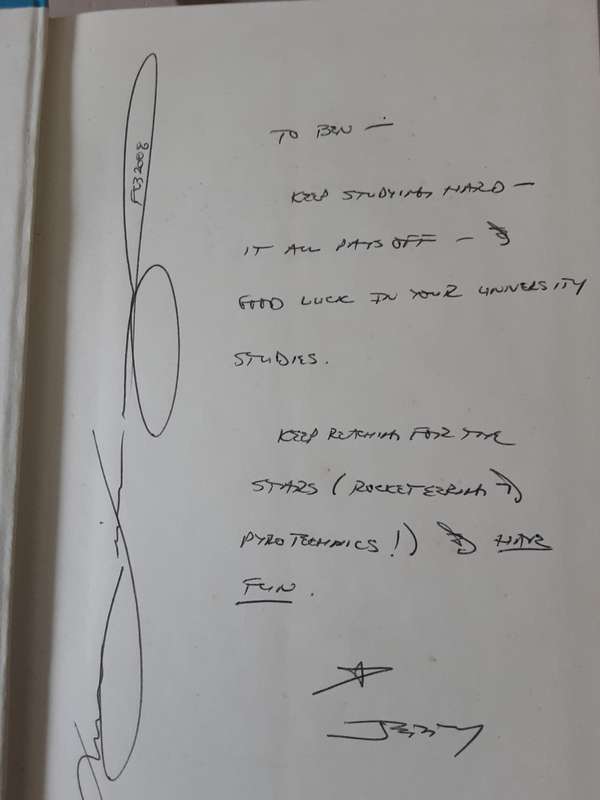 TO BEN —
KEEP STUDYING HARD —
IT ALL PAYS OFF — &
GOOD LUCK IN YOUR UNIVERSITY
STUDIES.
KEEP REACHING FOR THE
STARS (ROCKETEERING &
PYROTECHNICS!) & HAVE
FUN.
JERRY
FEB 2008